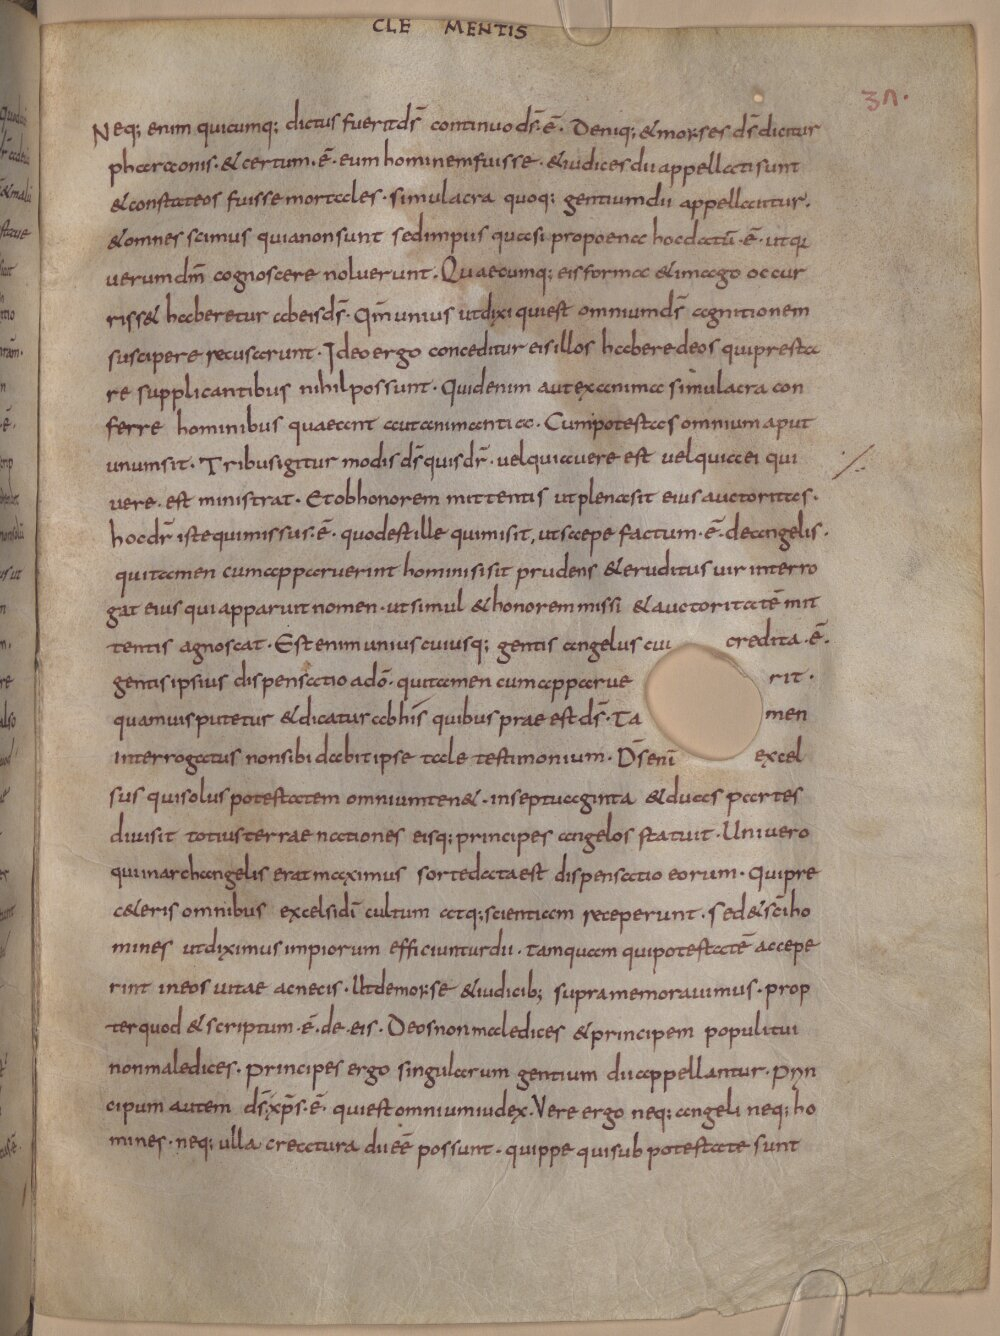 CLE MENTIS
37.
Neq; enim quicumq; dictus fuerit dс̄ continuo dс̄ ē. Deniq; & moyses dс̄ dicitur
pharaonis. & certum. ē. eum hominem fuisse. & iudices dii appellati sunt
& constat eos fuisse mortales. simulacra quoq; gentium dii appellantur.
& omnes scimus quia non sunt sed impiis quasi pro poena hoc datū. ē. ut qui
uerum dm̄ cognoscere noluerunt. Quaecumq; eis forma & imago occur
riss& haberetur ab eis dс̄. Qm̄ unius ut dixi qui est omnium dс̄ agnitionem
suscipere recusarunt. Ideo ergo conceditur eis illos habere deos qui presta
re supplicantibus nihil possunt. Quid enim aut exanima simulacra con
ferre hominibus quaeant aut animantia. Cum potestas omnium aput
unum sit. Tribus igitur modis dс̄ quis dr̄. uel quia uere est uel quia ei qui
uere. est ministrat. Et ob honorem mittentis ut plena sit eius auctoritas.
hoc dr̄ iste qui missus. ē. quod est ille qui misit, ut saepe factum. ē. de angelis.
qui tamen cum apparuerint homini si sit prudens & eruditus uir interro
gat eius qui apparuit nomen. ut simul & honorem missi & auctoritatē mit
tentis agnoscat. Est enim unius cuiusq; gentis angelus cui credita. ē.
gentis ipsius dispensatio a dō. qui tamen cum apparue rit.
quamuis putetur & dicatur ab his quibus prae est dс̄. Ta men
interrogatus non sibi dabit ipse tale testimonium. Dс̄ enī excel
sus qui solus potestatem omnium ten&. in septuaginta & duas partes
diuisit totius terrae nationes eisq; principes angelos statuit. Uni uero
qui in archangelis erat maximus sorte data est dispensatio eorum. Qui pre
c&eris omnibus excelsi dī cultum atq; scientiam receperunt. Sed & sc̄i ho
mines ut diximus impiorum efficiuntur dii. tamquam qui potestatē accepe
rint in eos uitae ac necis. Ut de moyse & iudicib; supra memorauimus. prop
ter quod & scriptum. ē. de. eis. Deos non maledices & principem populi tui
non maledices. principes ergo singularum gentium dii appellantur. Prin
cipum autem dс̄ xp̄s. ē. qui est omnium iudex. Vere ergo neq; angeli neq; ho
mines. neq; ulla creatura dii eē possunt. quippe qui sub potestate sunt